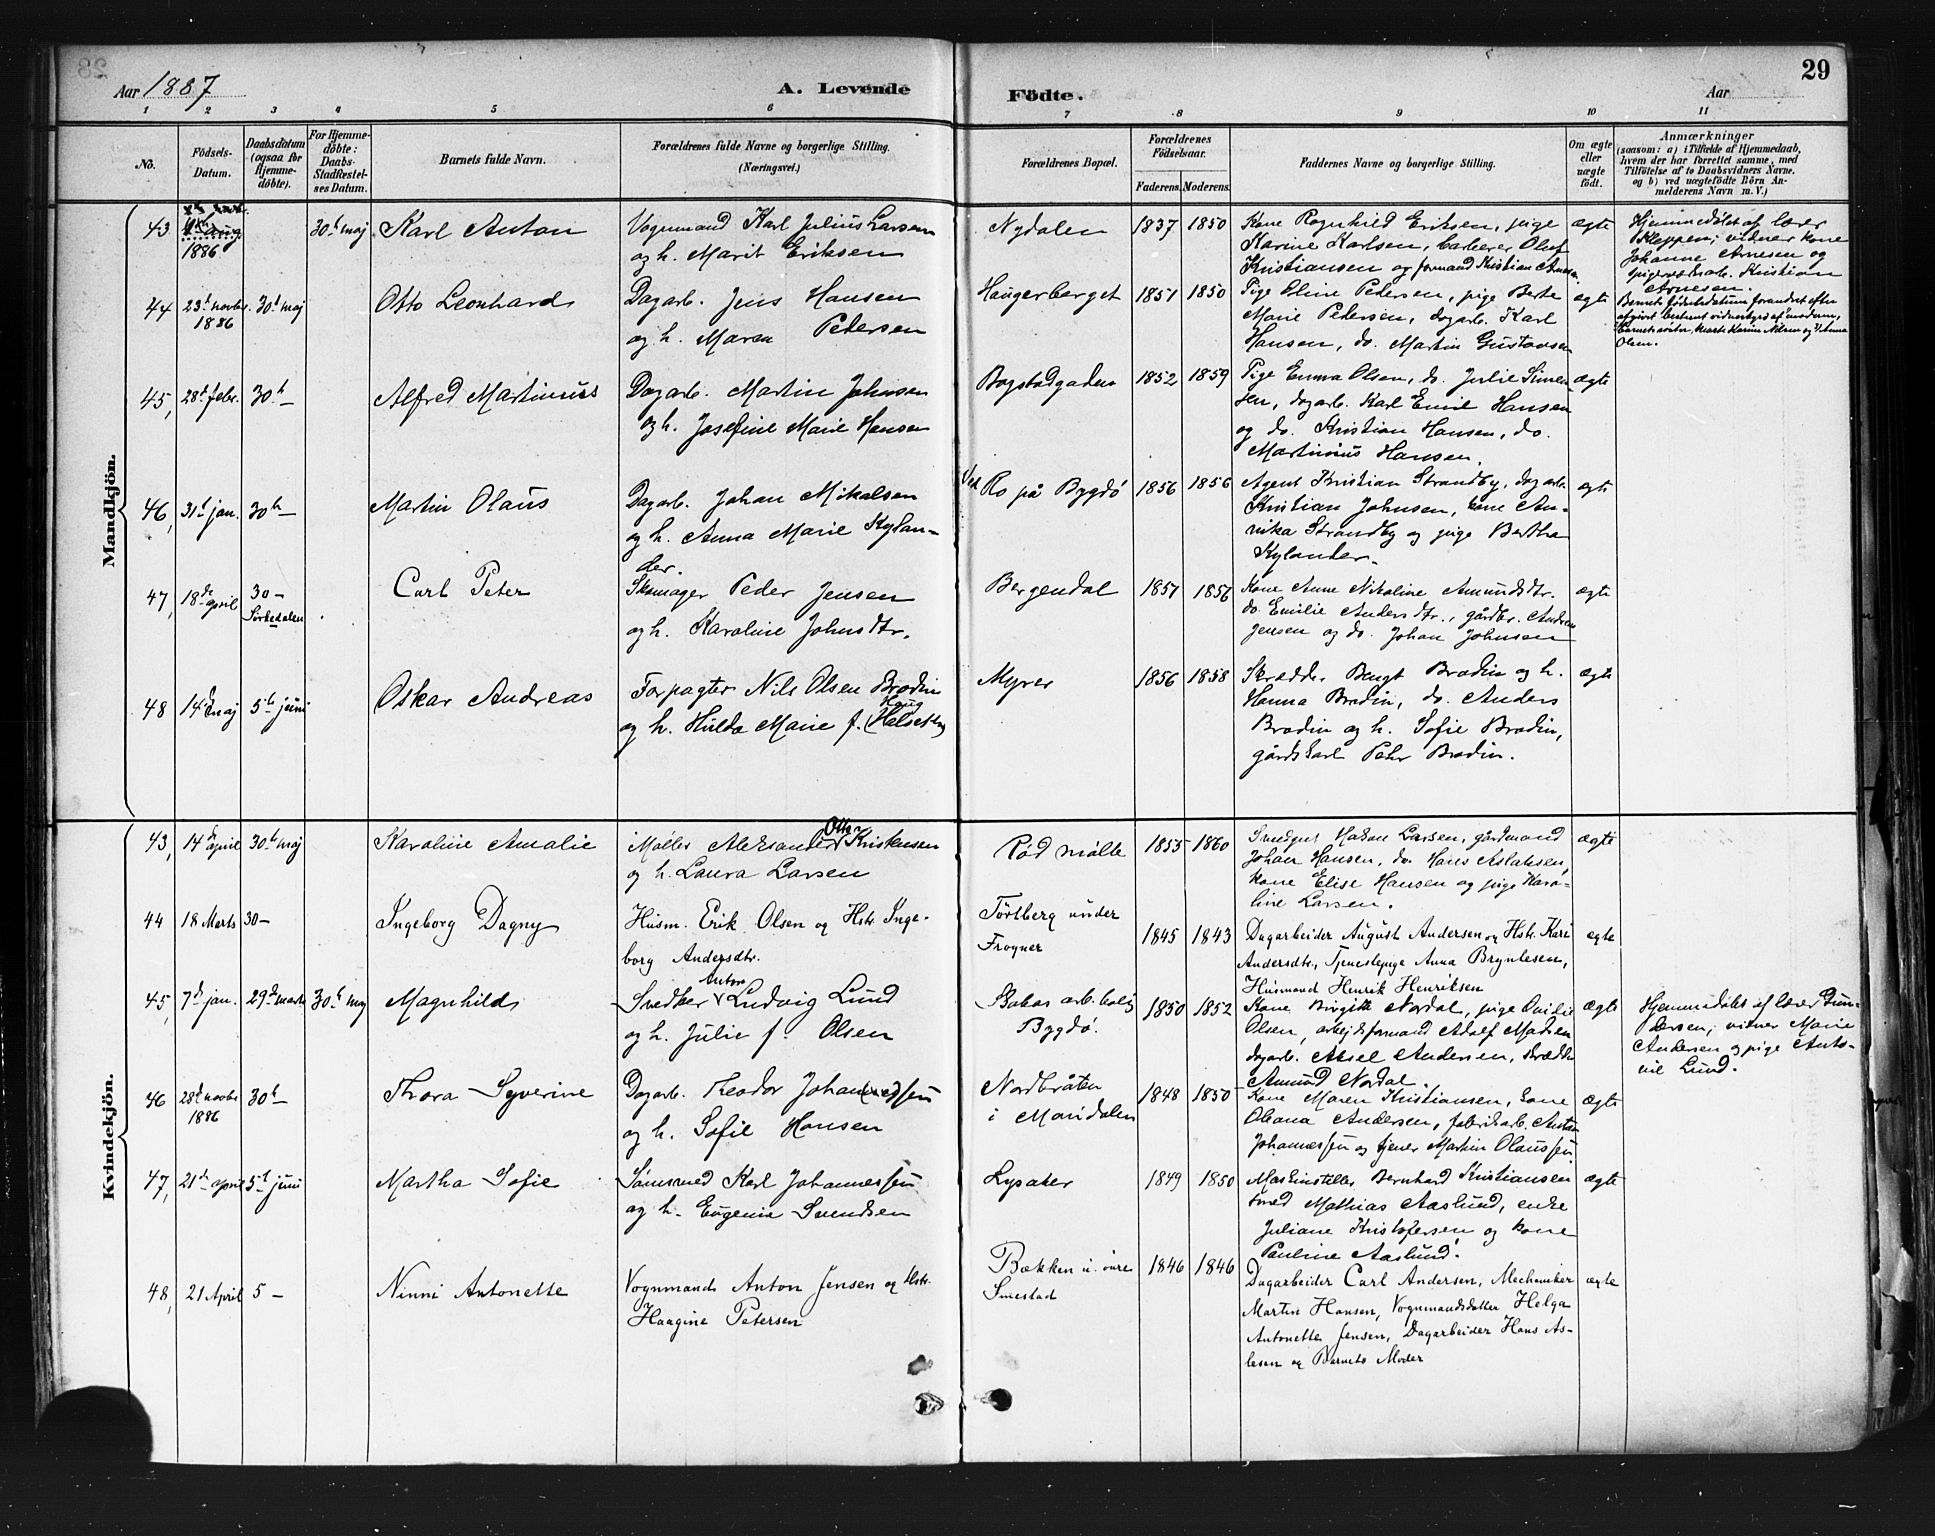 Aar 1887
A. Levende
Födte.
29
Aar
1 2 3 4 5 6 7 8 9 10 11
No.
Födsels-
Datum.
Daabsdatum
(ogsaa for
Hjemme-
döbte).
For Hjemme-
döbte:
Daabs-
Stadfæstel-
ses Datum.
Barnets fulde Navn.
Forældrenes fulde Navne og borgerlige Stilling.
(Næringsvei.)
Forældrenes Bopæl.
Forældrenes
Födselsaar.
Faderens.
Moderens.
Faddernes Navne og borgerlige Stilling.
Om ægte
eller
uægte
födt.
Anmærkninger
(saasom: a) i Tilfælde af Hjemmedaab,
hvem der har forrettet samme, med
Tilföielse af to Daabsvidners Navne,
og b) ved uægtefödte Börn An-
melderens Navn m. V.)
Mandkjön.
43 1886 30th maj Karl Anton
Vognmand Karl Julius Larsen
og h. Marit Eriksen
Nydalen 1837 1850
Kone Ragnhild Eriksen, pige
Karine Karlsen, barberer Oluf
Kristiansen og formand Kristian Arnesen
ægte
Hjemmedøbt af lærer
Kleppen; vidner kone
Johanne Arnesen og
Kristian
Arnesen.
Barnets fødselsdatum forandret efter
Olsen.
44 23d novbr. 1886 30th maj Otto Leonhard
Dagarb. Jens Hansen
og h. Maren Pedersen
Haugerberget 1851 1850
Pige Oline Pedersen, pige Berte
Marie Pedersen, dagarb. Karl
Hansen, do. Martin Gustavsen
ægte
45, 28d febr. 30th — Alfred Martinius
Dagarb. Martin Johnsen
og h. Josefine Marie Hansen
Bogstadgaden 1852 1859
Pige Emma Olsen, do. Julie Simen-
sen, dagarb. Karl Emil Hansen
og do. Kristian Hansen, do.
Martinius Hansen.
ægte
46, 31te jan. 30th — Martin Olaus
Dagarb. Johan Mikalsen
og h. Anna Marie Kylan-
der.
Ved Ro på Bygdø 1856 1856
Agent Kristian Strandby, dagarb.
Kristian Johnsen, kone An-
nika Strandby og pige Bertha
Kylander.
ægte
47, 18de april 30 — Sørkedalen Carl Peter
Skomager Peder Jensen
og h. Karoline Johnsdtr.
Bergendal 1857 1856
Kone Anne Nikoline Amundsdtr.
do. Emilie Andersdtr., gårdbr. Anders
Jensen og do. Johan Johnsen
ægte
48 14d maj 5th juni Oskar Andreas
Forpagter Nils Olsen Brodin
og h. Hulda Marie f.
Myrer 1856 1858
Skrædder Bengt Brodin og h.
Hanna Brodin, do. Anders
Brodin og h. Sofie Brodin,
gårdskarl Pehr Brodin.
ægte
Kvindekjön.
43, 14de april 30th maj Karoline Amalie
Møller Aleksander Otto Kristensen
og h. Laura Larsen
Rød mølle 1855 1860
Hakon Larsen, gårdmand
Johan Hansen, do. Hans Aslaksen,
kone Elise Hansen og pige Karo-
line Larsen.
ægte
44 18 Marts 30 — Ingeborg Dagny
Husm. Erik Olsen og Hstr. Inge-
borg Andersdtr.
Tørtberg under
Frogner 1845 1843
Dagarbeider August Andersen og Hstr. Kari
Andersdtr., Tjenestepige Anna Bryntesen,
Husmand Henrik Henriksen
ægte
45, 7d jan. 29d marts 30th maj Magnhild
Snedker Anton Ludvig Lund
og h. Julie f. Olsen
arb.bolig
Bygdø. 1850 1852
Kone Birgitte Nordal, pige
Olsen, arbejdsformand Adolf Madsen
dagarb. Aksel Andersen, skrædder
Amund Nordal.
ægte
Hjemmedøbt af lærer Gun-
dersen; vidner Marie
Andersen og pige Anto-
nie Lund.
46 28d novbr. 1886 30th — Thora Syverine
Dagarb. Theodor Johannessen
og h. Sofie Hansen
Nordbråten
i Maridalen 1848 1850
Kone Maren Kristiansen, kone
Oleana Andersen, fabrikarb. Anton
Johannessen og tjener Martin Olaussen
ægte
47, 21de april 5th juni Martha Sofie
Karl Johannessen
og h. Eugenie Svendsen
Lysaker 1849 1850
Bernhard Kristiansen
smed Mathias Aaslund, enke
Juliane Kristofersen og kone
Pauline Aaslund.
ægte
48, 21 April 5 — Ninni Antonette
Vognmand Anton Jensen og Hstr.
Haagine Petersen
Bækken u. øvre
Smestad 1846 1846
Dagarbeider Carl Andersen, Mechaniker
Martin Hansen, Vognmandsdatter Helga
Antonette Jensen, Dagarbeider Hans As-
lesen og Barnets Moder
ægte